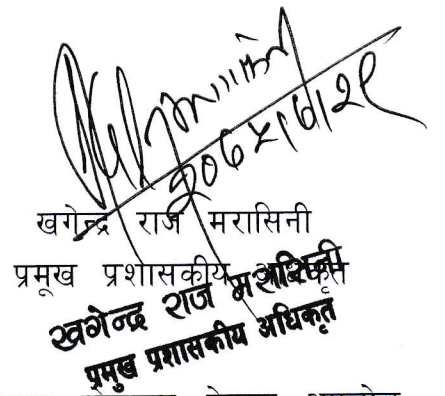 २०७५।७।२९
खगेन्द्र राज मरासिनी
प्रमूख प्रशासकीय अधिकृत
खगेन्द्र राज मरासिनी
प्रमुख प्रशासकीय अधिकृत